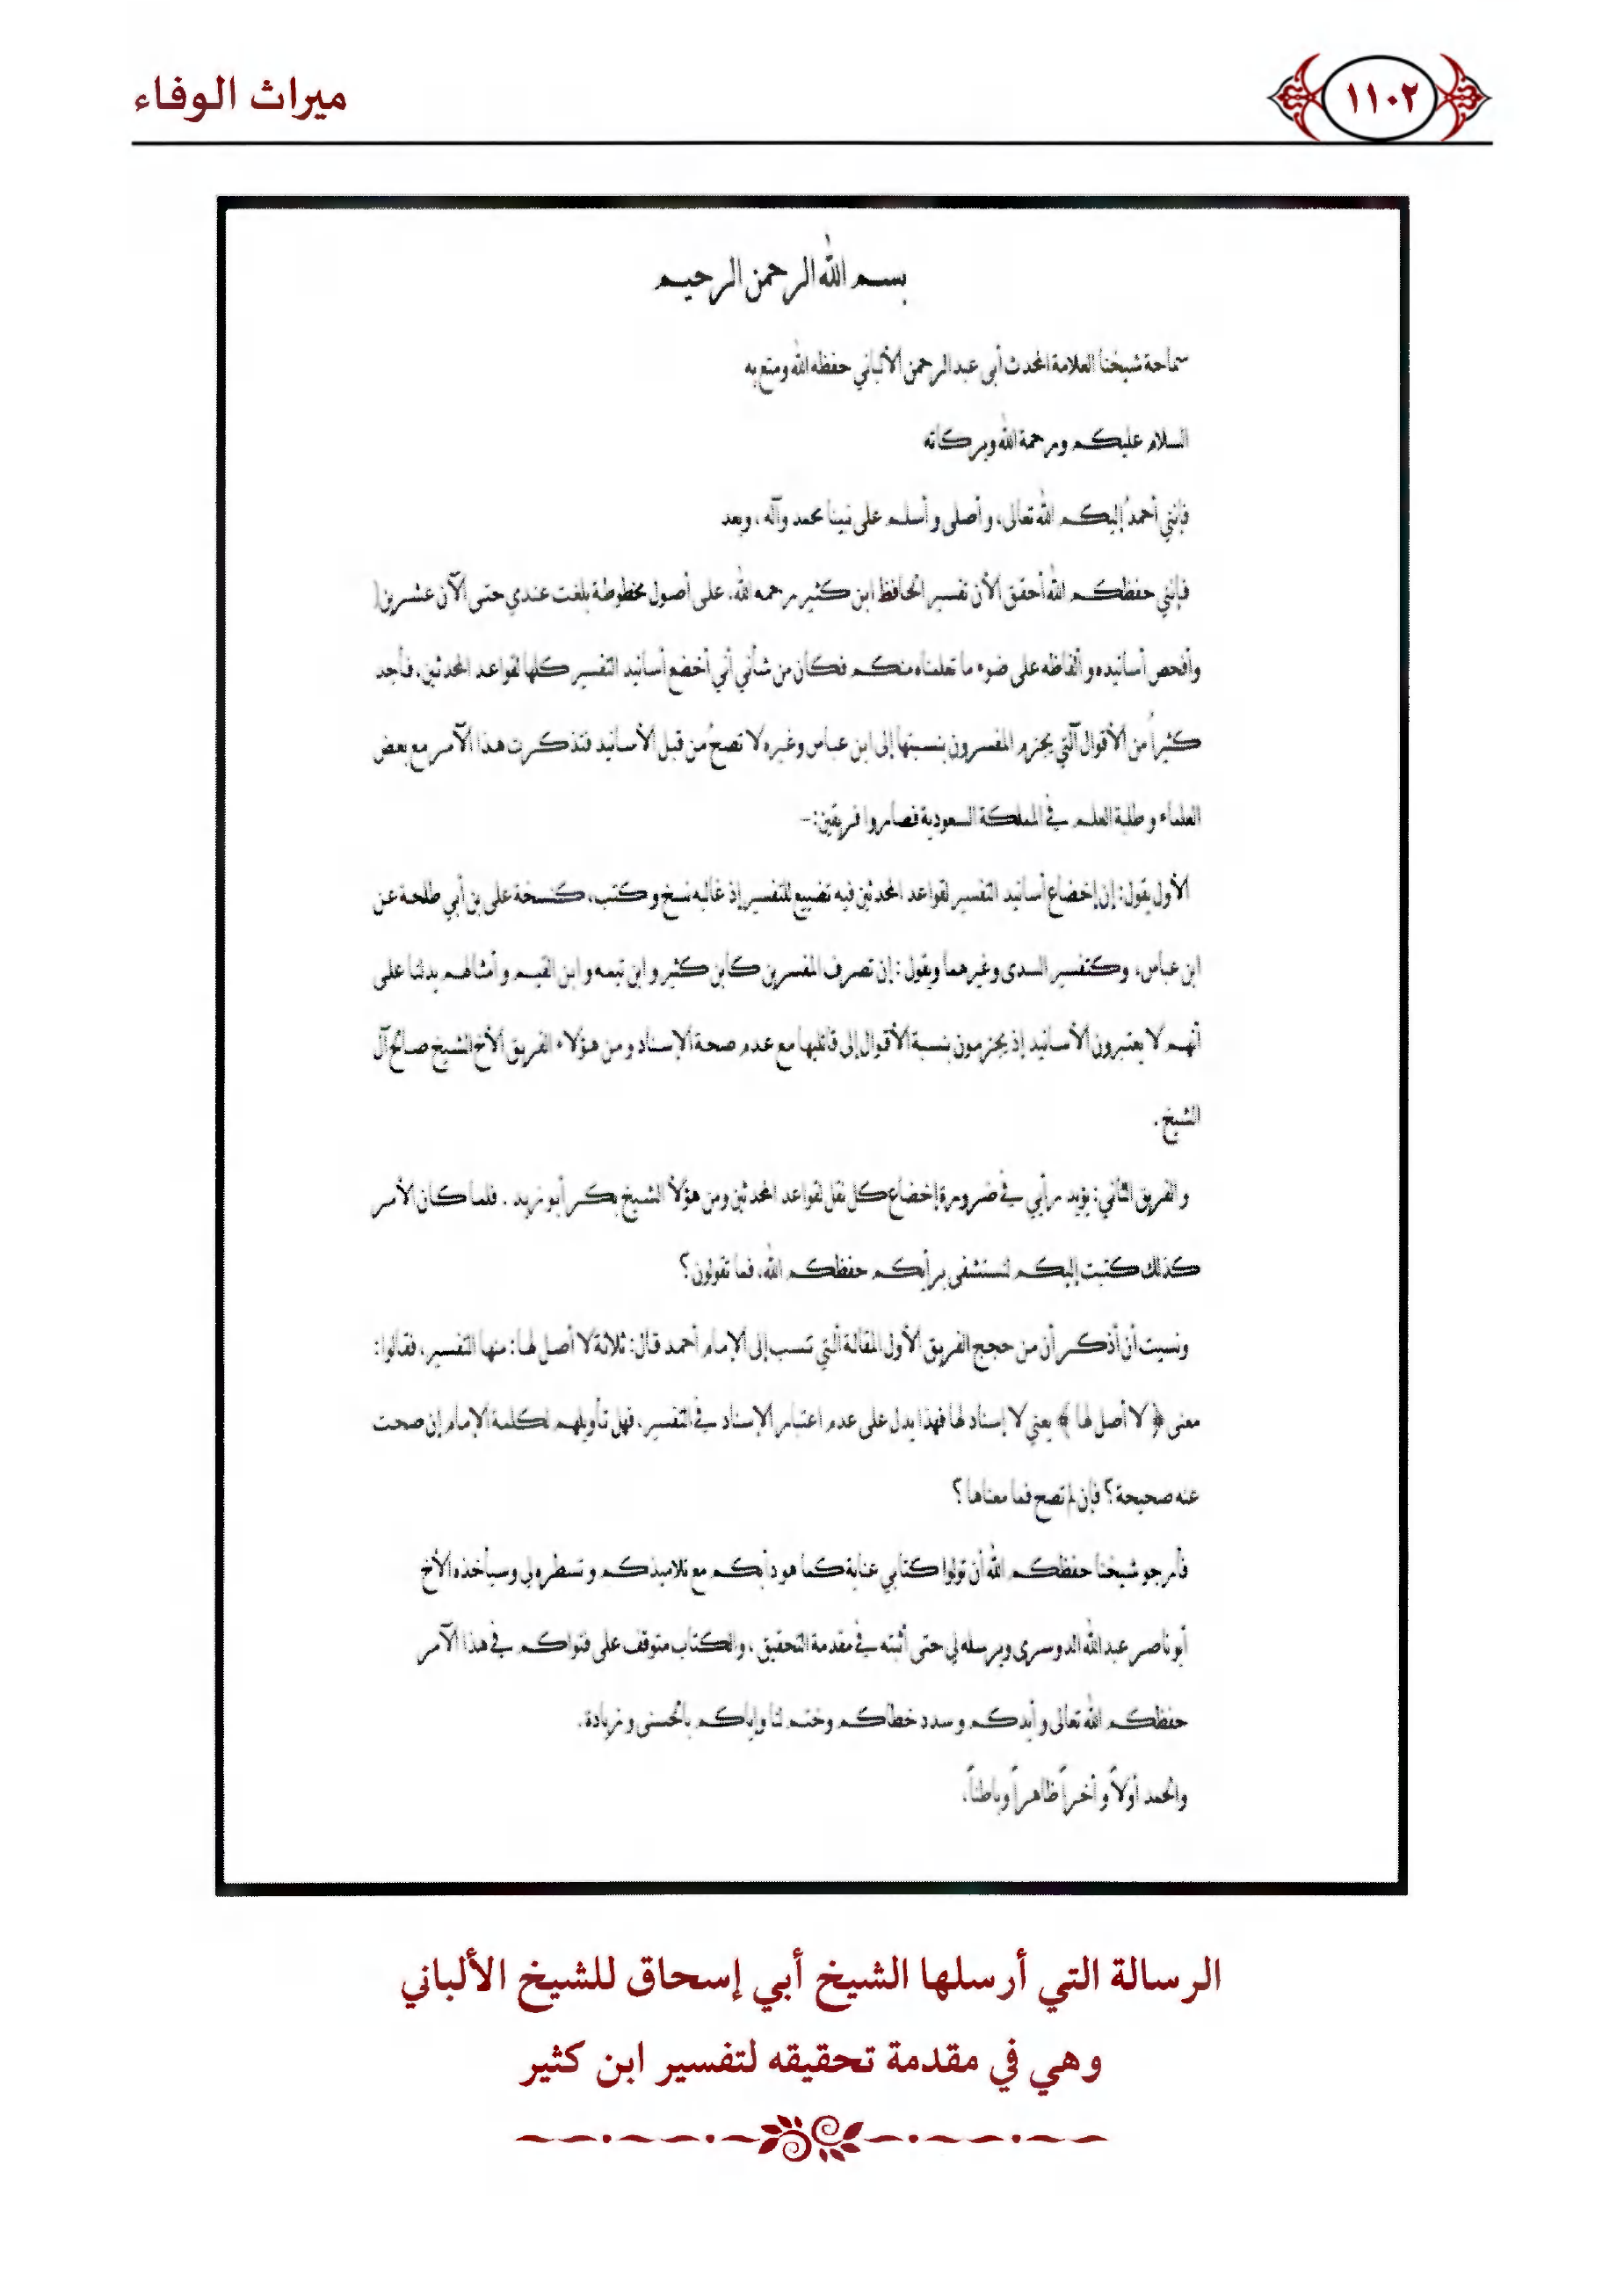 ١١٠٢
ميراث الوفاء
بسم الله الرحمن الرحيم
سماحة شيخنا العلامة المحدث أبى عبد الرحمن الألباني حفظه الله ومتع به
السلام عليكم ورحمة الله وبركاته
فإنني أحمدُ إليكم الله تعالى، وأصلى وأسلم على نبينا محمد وآله، وبعد
فإنني حفظكم الله أحقق الأن تفسير الحافظ ابن كثير رحمه الله، على أصول مخطوطة بلغت عندي حتى الآن عشرين
وأفحص أسانيده وألفاظه على ضوء ما تعلمناه منكم فكان من شأني أني أخضع أسانيد التفسير كلها لقواعد المحدثين، فأجد
كثيراً من الأقوال التي يجزم المفسرون بنسبتها إلى ابن عباس وغيره لا تصحُ من قبل الأسانيد فتذكرت هذا الأمر مع بعض
العلماء وطلبة العلم في المملكة السعودية فصاروا فريقين:-
الأول يقول: إن إخضاع أسانيد التفسير لقواعد المحدثين فيه تضييع للتفسير إذ غالبه نسخ وكتب، كنسخة على بن أبي طلحة عن
ابن عباس، وكتفسير السدى وغيرهما ويقول: إن تصرف المفسرين كابن كثير وابن تيمه وابن القيم وأمثالهم يدلنا على
أنهم لا يعتبرون الأسانيد إذ يجزمون بنسبة الأقوال إلى قائليها مع عدم صحة الإسناد ومن هؤلاء الفريق الأخ الشيخ صالح آل
الشيخ.
والفريق الثاني: يؤيد رأيي في ضرورة إخضاع كل نقل لقواعد المحدثين ومن هؤلاً الشيخ بكر أبو زيد. فلما كان الأمر
كذلك كتبت إليكم لنستشفى برأيكم حفظكم الله، فما تقولون؟
ونسيت أن أذكر أن من حجج الفريق الأول المقالة التي تنسب إلى الإمام أحمد قال: ثلاثة لا أصل لها: منها التفسير، فقالوا:
معنى ﴿لا أصل لها﴾ يعني لا إسناد لها فهذا يدل على عدم اعتبار الإسناد في التفسير، فهل تأويلهم لكلمة الإمام إن صحت
عنه صحيحة؟ فإن لم تصح فما معناها؟
فأرجو شيخنا حفظكم الله أن تولوا كتابي عناية كما هو دأبكم مع تلاميذكم وتسطروه لى وسيأخذه الأخ
أبو ناصر عبد الله الدوسرى ويرسله لي حتى أثبته في مقدمة التحقيق، والكتاب متوقف على فتواكم في هذا الأمر
حفظكم الله تعالى وأيدكم وسدد خطاكم وختم لنا وإياكم بالحسنى وزيادة.
والحمد أولاً وأخراً ظاهراً وباطناً،
الرسالة التي أرسلها الشيخ أبي إسحاق للشيخ الألباني
وهي في مقدمة تحقيقه لتفسير ابن كثير